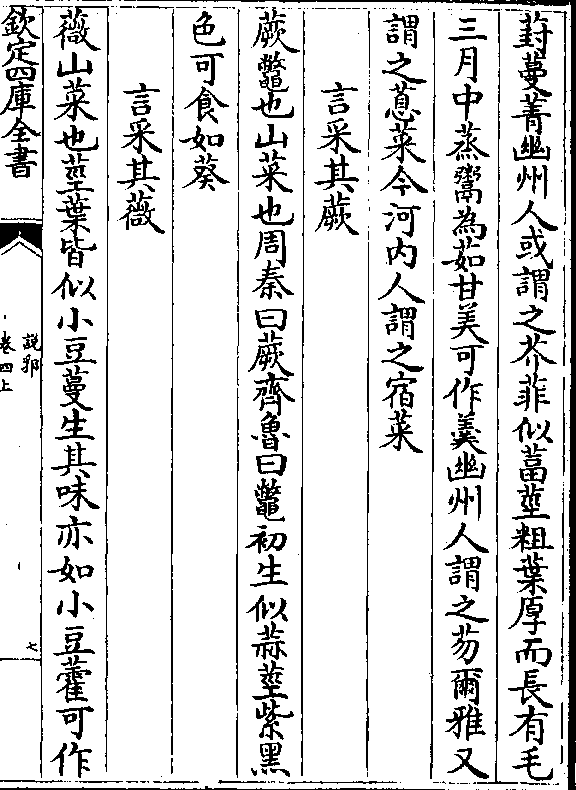 葑蔓菁幽州人或謂之芥菲似葍莖粗葉厚而長有毛
三月中蒸鬻為茹甘美可作羹幽州人謂之芴爾雅又
謂之蒠菜今河内人謂之宿菜
言采其蕨
蕨鼈也山菜也周秦曰蕨齊魯曰鼈初生似蒜莖紫黒
色可食如葵
言采其薇
薇山菜也莖葉皆似小豆蔓生其味亦如小豆藿可作
欽定四庫全書
說郛
卷四上
七